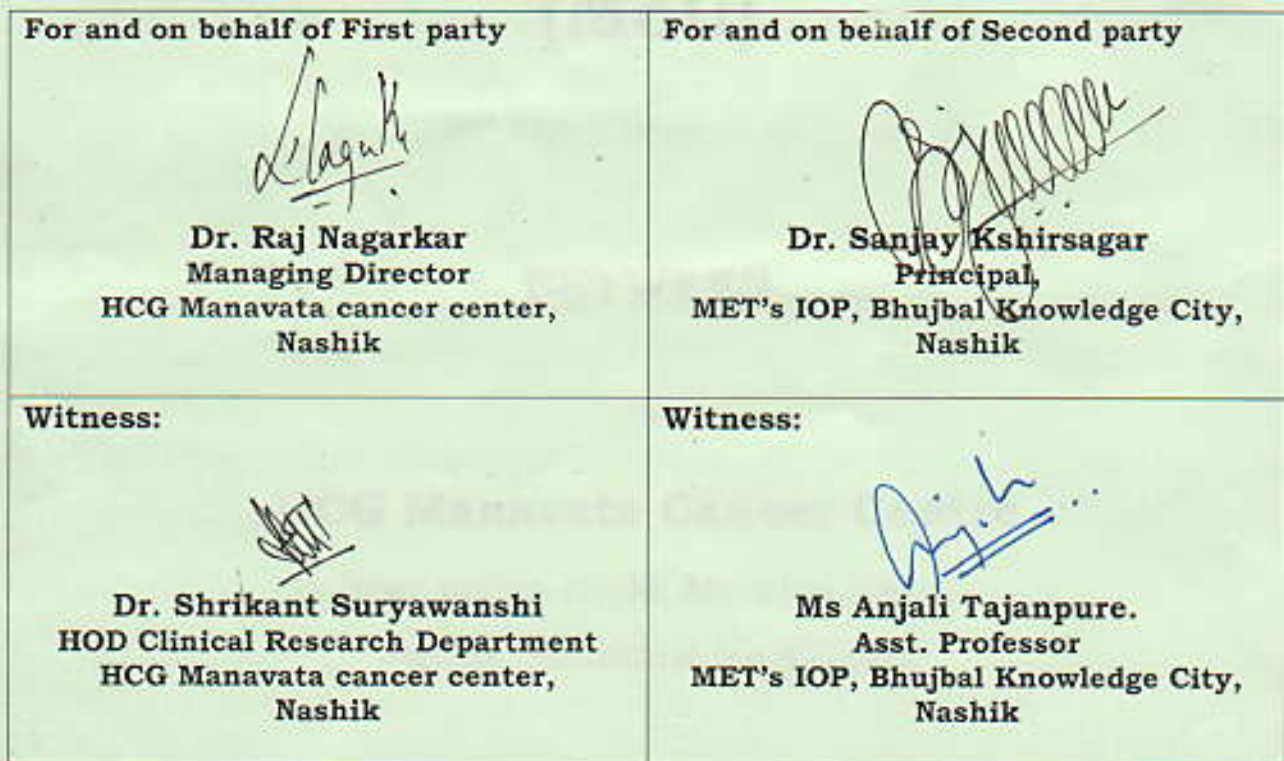 For and on behalf of First party
Dr. Raj Nagarkar
Managing Director
HCG Manavata cancer center,
Nashik
For and on behalf of Second party
Dr. Sanjay Kshirsagar
Principal,
MET's IOP, Bhujbal Knowledge City,
Nashik
Witness:
Dr. Shrikant Suryawanshi
HOD Clinical Research Department
HCG Manavata cancer center,
Nashik
Witness:
Ms Anjali Tajanpure.
Asst. Professor
MET's IOP, Bhujbal Knowledge City,
Nashik